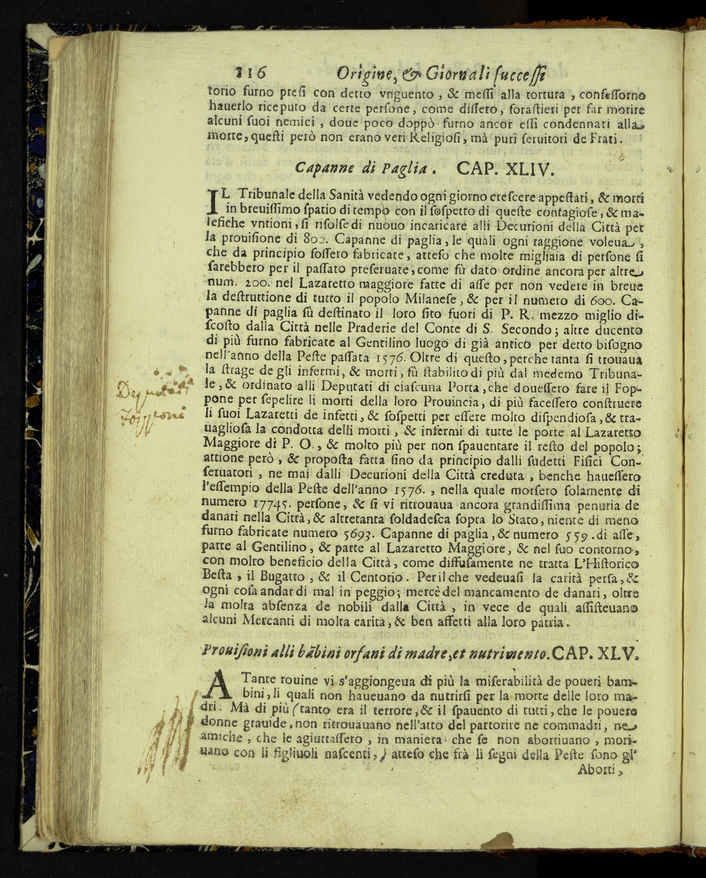 116 Origine, & Giornali successi
torio furno presi con detto vnguento, & messi alla tortura, confessorno
hauerlo riceputo da certe persone, come dissero, forastieri per far morire
alcuni suoi nemici, doue poco doppò furno ancor essi condennati alla
morte, questi però non erano veri Religiosi, mà puri seruitori de Frati.
Capanne di Paglia. CAP. XLIV.
IL Tribunale della Sanità vedendo ogni giorno crescere appestati, & morti
in breuissimo spatio di tempo con il sospetto di queste contagiose, & ma-
lefiche vntioni, si risolse di nuouo incaricare alli Decurioni della Città per
la prouisione di 800. Capanne di paglia, le quali ogni raggione voleua,
che da principio fossero fabricate, atteso che molte migliaia di persone si
sarebbero per il passato preseruate, come fù dato ordine ancora per altre
num. 200. nel Lazaretto maggiore fatte di asse per non vedere in breue
la destruttione di tutto il popolo Milanese, & per il numero di 600. Ca-
panne di paglia fù destinato il loro sito fuori di P. R. mezzo miglio di-
scosto dalla Città nelle Praderie del Conte di S. Secondo; altre ducento
di più furno fabricate al Gentilino luogo di già antico per detto bisogno
nell'anno della Peste passata 1576. Oltre di questo, perche tanta si trouaua
la strage de gli infermi, & morti, fù stabilito di più dal medemo Tribuna-
le, & ordinato alli Deputati di ciascuna Porta, che douessero fare il Fop-
pone per sepelire li morti della loro Prouincia, di più facessero construere
li suoi Lazaretti de infetti, & sospetti per essere molto dispendiosa, & tra-
uagliosa la condotta delli morti, & infermi di tutte le porte al Lazaretto
Maggiore di P. O., & molto più per non spauentare il resto del popolo;
attione però, & proposta fatta sino da principio dalli sudetti Fisici Con-
seruatori, ne mai dalli Decurioni della Città creduta, benche hauessero
l'essempio della Peste dell'anno 1576., nella quale morsero solamente di
numero 17745. persone, & si vi ritrouaua ancora grandissima penuria de
danari nella Città, & altretanta soldadesca sopra lo Stato, niente di meno
furno fabricate numero 5693. Capanne di paglia, & numero 559. di asse,
parte al Gentilino, & parte al Lazaretto Maggiore, & nel suo contorno,
con molto beneficio della Città, come diffusamente ne tratta L'Historico
Besta, il Bugatto, & il Centorio. Per il che vedeuasi la carità persa, &
ogni cosa andar di mal in peggio; mercè del mancamento de danari, oltre
la molta absenza de nobili dalla Città, in vece de quali assisteuano
alcuni Mercanti di molta carità, & ben affetti alla loro patria.
Deputati
Fopponi
Prouisioni alli bābini orfani di madre, et nutrimento. CAP. XLV.
A Tante rouine vi s'aggiongeua di più la miserabilità de poueri bam-
bini, li quali non haueuano da nutrirsi per la morte delle loro ma-
dri. Mà di più (tanto era il terrore, & il spauento di tutti, che le pouere
donne grauide, non ritrouauano nell'atto del partorire ne commadri, ne
amiche, che le agiuttassero, in maniera che se non abortiuano, mori-
uano con li figliuoli nascenti,) atteso che frà li segni della Peste sono gl'
Aborti,